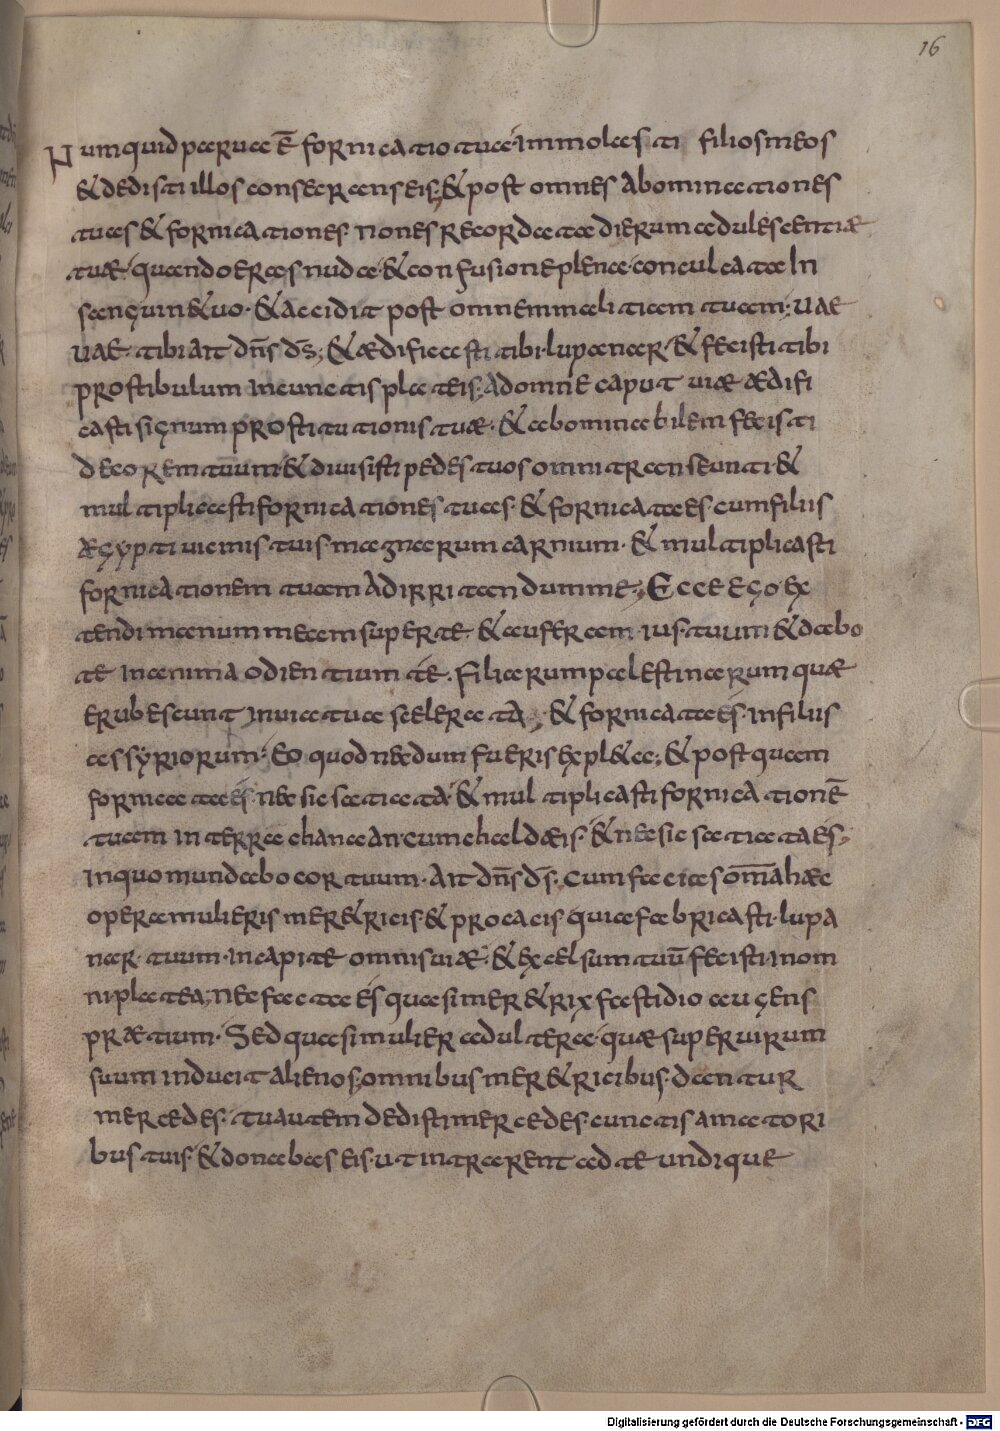 16
Numquid parua ē fornicatio tua immolasti filios meos
& dedisti illos consecrans eis; & post omnes abominationes
tuas & fornicationes non es recordata dierum adulescentiæ
tuæ quando eras nuda & confusione plena conculcata In
sanguin& uo · & accidit post omnem malitiam tuam; uae
uae tibi ait dn̄s ds̄; & ædificasti tibi lupanar & fecisti tibi
prostibulum in cunctis plateis; ad omne caput uiæ ædifi
casti signum prostitutionis tuæ · & abominabilem fecisti
decorem tuum & diuisisti pedes tuos omni transeunti &
multiplicasti fornicationes tuas · & fornicata es cum filiis
ægypti uicinis tuis magnarum carnium · & multiplicasti
fornicationem tuam ad irritandum me; Ecce ego ex
tendi manum meam super te · & auferam ius tuum & dabo
te in anima odientium te · filiarum palestinarum quæ
erubescunt in uia tua scelerata; & fornicata es in filiis
assyriorum · Eo quod necdum fueris expl&a; & postquam
fornicata es nec sic satiata & multiplicasti fornicationē
tuam in terra chanaan cum chaldæis · & nec sic satiata es;
In quo mundabo cor tuum · Ait dn̄s ds̄ · cum facias om̄a hæc
opera mulieris mer&ricis & procacis quia fabricasti lupa
nar tuum in capite omnis uiæ · & excelsum tuū fecisti in om
ni platea; nec facta es quasi mer&rix fastidio augens
prætium · Sed quasi mulier adultera quæ super uirum
suum inducit alienos; omnibus mer&ricibus dantur
mercedes · tu autem dedisti mercedes cunctis amatori
bus tuis · & donabas eis ut intrarent ad te undique
Digitalisierung gefördert durch die Deutsche Forschungsgemeinschaft - DFG